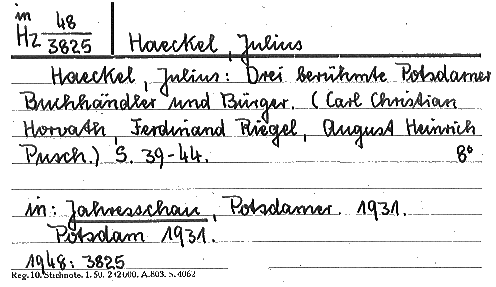 in
Hz 48/3825 Haeckel, Julius
Haeckel, Julius: Drei berühmte Potsdamer
Buchhändler und Bürger. (Carl Christian
Horvath, Ferdinand Riegel, August Heinrich
Pusch.) S. 39-44. 8°
in: Jahresschau, Potsdamer. 1931.
Potsdam 1931.
1948: 3825
Reg. 10. Stichnote. 1. 50. 2/2000. A.803. S.4062